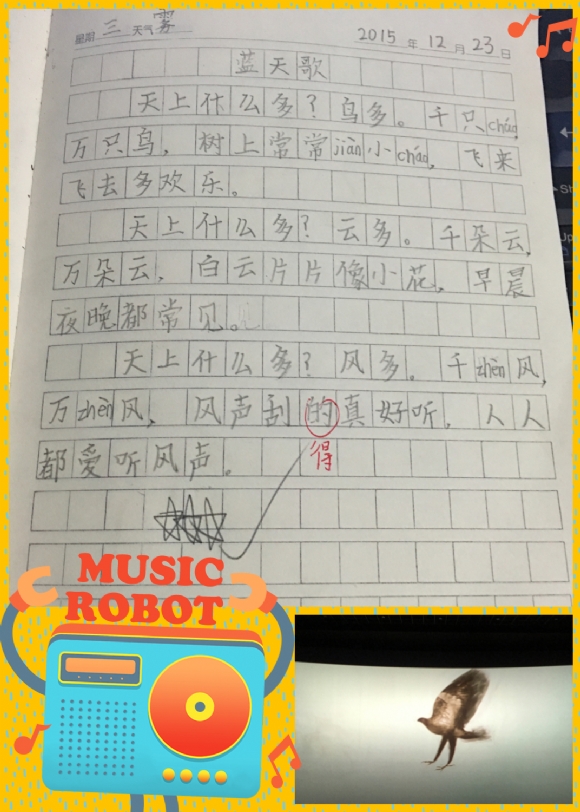 星期 三 天气 雾 2015 年 12 月 23 日
蓝天歌
天上什么多?鸟多。千只cháo,
万只鸟,树上常常jiàn小cháo,飞来
飞去多欢乐。
天上什么多?云多。千朵云,
万朵云,白云片片像小花,早晨
夜晚都常见。
天上什么多?风多。千zhèn风,
万zhèn风,风声刮的真好听,人人
都爱听风声。
得
MUSIC
ROBOT